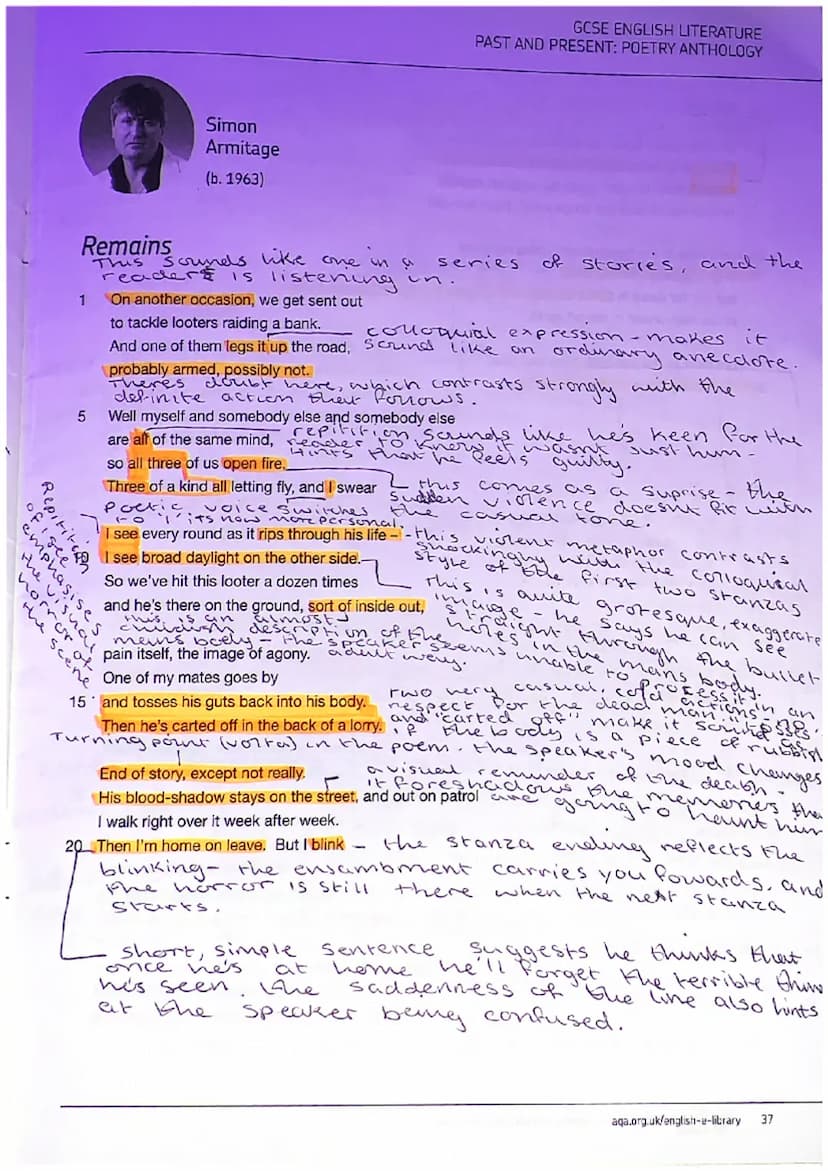 GCSE ENGLISH LITERATURE
PAST AND PRESENT: POETRY ANTHOLOGY
Simon
Armitage
(b. 1963)
Remains
This sounds like one in a series of stories, and the
reader is listening in.
1 On another occasion, we get sent out
to tackle looters raiding a bank.
colloquial expression - makes it
And one of them legs it up the road,
sound like an ordinary anecdote.
probably armed, possibly not.
Theres doubt here, which contrasts strongly with the
definite action that follows.
5 Well myself and somebody else and somebody else
repitition sounds like he's keen for the
are all of the same mind,
reader to know it wasnt just him -
so all three of us open fire.
Hints that he feels guilty.
Three of a kind all letting fly, and I swear
this comes as a suprise - the
sudden violence doesnt fit with
the casual tone.
Poetic voice switches
to 'I' its now more personal.
I see every round as it rips through his life –
- this violent metaphor contrasts
shockingly with the colloquial
style of the first two stanzas
Repitition
of I see
emphasises
the visual
horror of
the scene
10 I see broad daylight on the other side.
So we've hit this looter a dozen times
This is quite grotesque, exaggerate
image - he says he can see
straight through the bullet
holes in the mans body.
and he's there on the ground, sort of inside out,
this is an almost
childish description of the
mans body - the speaker seems unable to process it in an
adult way.
pain itself, the image of agony.
One of my mates goes by
15 and tosses his guts back into his body.
Then he's carted off in the back of a lorry.
Two very casual, cold actions - no
respect for the dead man. "tosses"
and "carted off" make it sound as
if the body is a piece of rubbish
Turning point (volta) in the poem - the speaker's mood changes
End of story, except not really.
a visual reminder of the death -
it foreshadows the memories tha
are going to haunt him
His blood-shadow stays on the street, and out on patrol
I walk right over it week after week.
20 Then I'm home on leave. But I blink
- the stanza ending reflects the
blinking - the ensambment carries you fowards, and
the horror is still there when the next stanza
starts.
short, simple sentence suggests he thinks that
once he's at home he'll forget the terrible thin
he's seen. the saddenness of the line also hints
at the speaker being confused.
aqa.org.uk/english-e-library 37